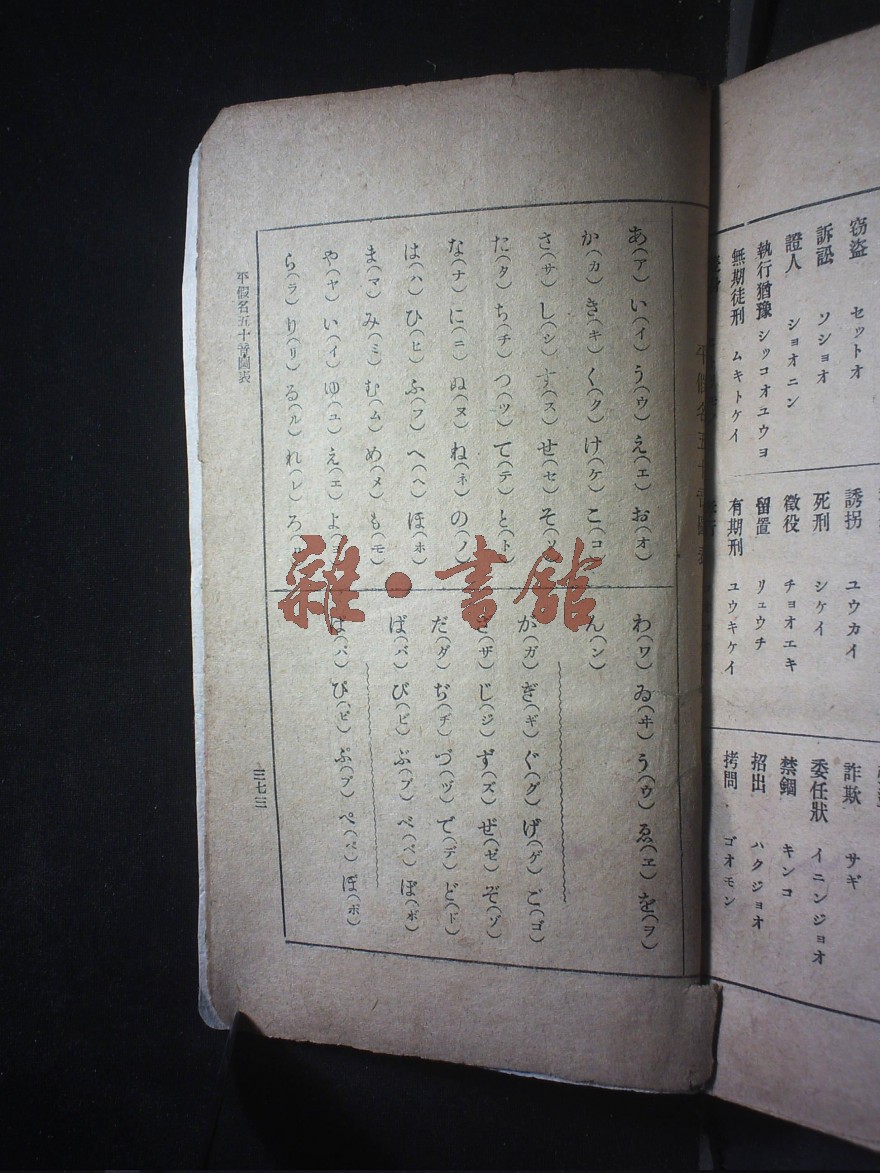 窃盜 セットオ
訴訟 ソショオ
證人 ショオニン
執行猶豫 シッコオユウヨ
無期徒刑 ムキトケイ
誘拐 ユウカイ
死刑 シケイ
徵役 チョオエキ
留置 リュウチ
有期刑 ユウキケイ
詐欺 サギ
委任狀 イニンジョオ
禁錮 キンコ
招出 ハクジョオ
拷問 ゴオモン
平假名五十音圖表
あ(ア) い(イ) う(ウ) え(エ) お(オ)
か(カ) き(キ) く(ク) け(ケ) こ(コ)
さ(サ) し(シ) す(ス) せ(セ) そ(ソ)
た(タ) ち(チ) つ(ツ) て(テ) と(ト)
な(ナ) に(ニ) ぬ(ヌ) ね(ネ) の(ノ)
は(ハ) ひ(ヒ) ふ(フ) へ(ヘ) ほ(ホ)
ま(マ) み(ミ) む(ム) め(メ) も(モ)
や(ヤ) い(イ) ゆ(ユ) え(エ) よ(ヨ)
ら(ラ) り(リ) る(ル) れ(レ) ろ
わ(ワ) ゐ(ヰ) う(ウ) ゑ(ヱ) を(ヲ)
ん(ン)
が(ガ) ぎ(ギ) ぐ(グ) げ(ゲ) ご(ゴ)
ざ(ザ) じ(ジ) ず(ズ) ぜ(ゼ) ぞ(ゾ)
だ(ダ) ぢ(ヂ) づ(ヅ) で(デ) ど(ド)
ば(バ) び(ビ) ぶ(ブ) べ(ベ) ぼ(ボ)
ぱ(パ) ぴ(ピ) ぷ(プ) ぺ(ペ) ぽ(ポ)
平假名五十音圖表
三七三
雜·書館